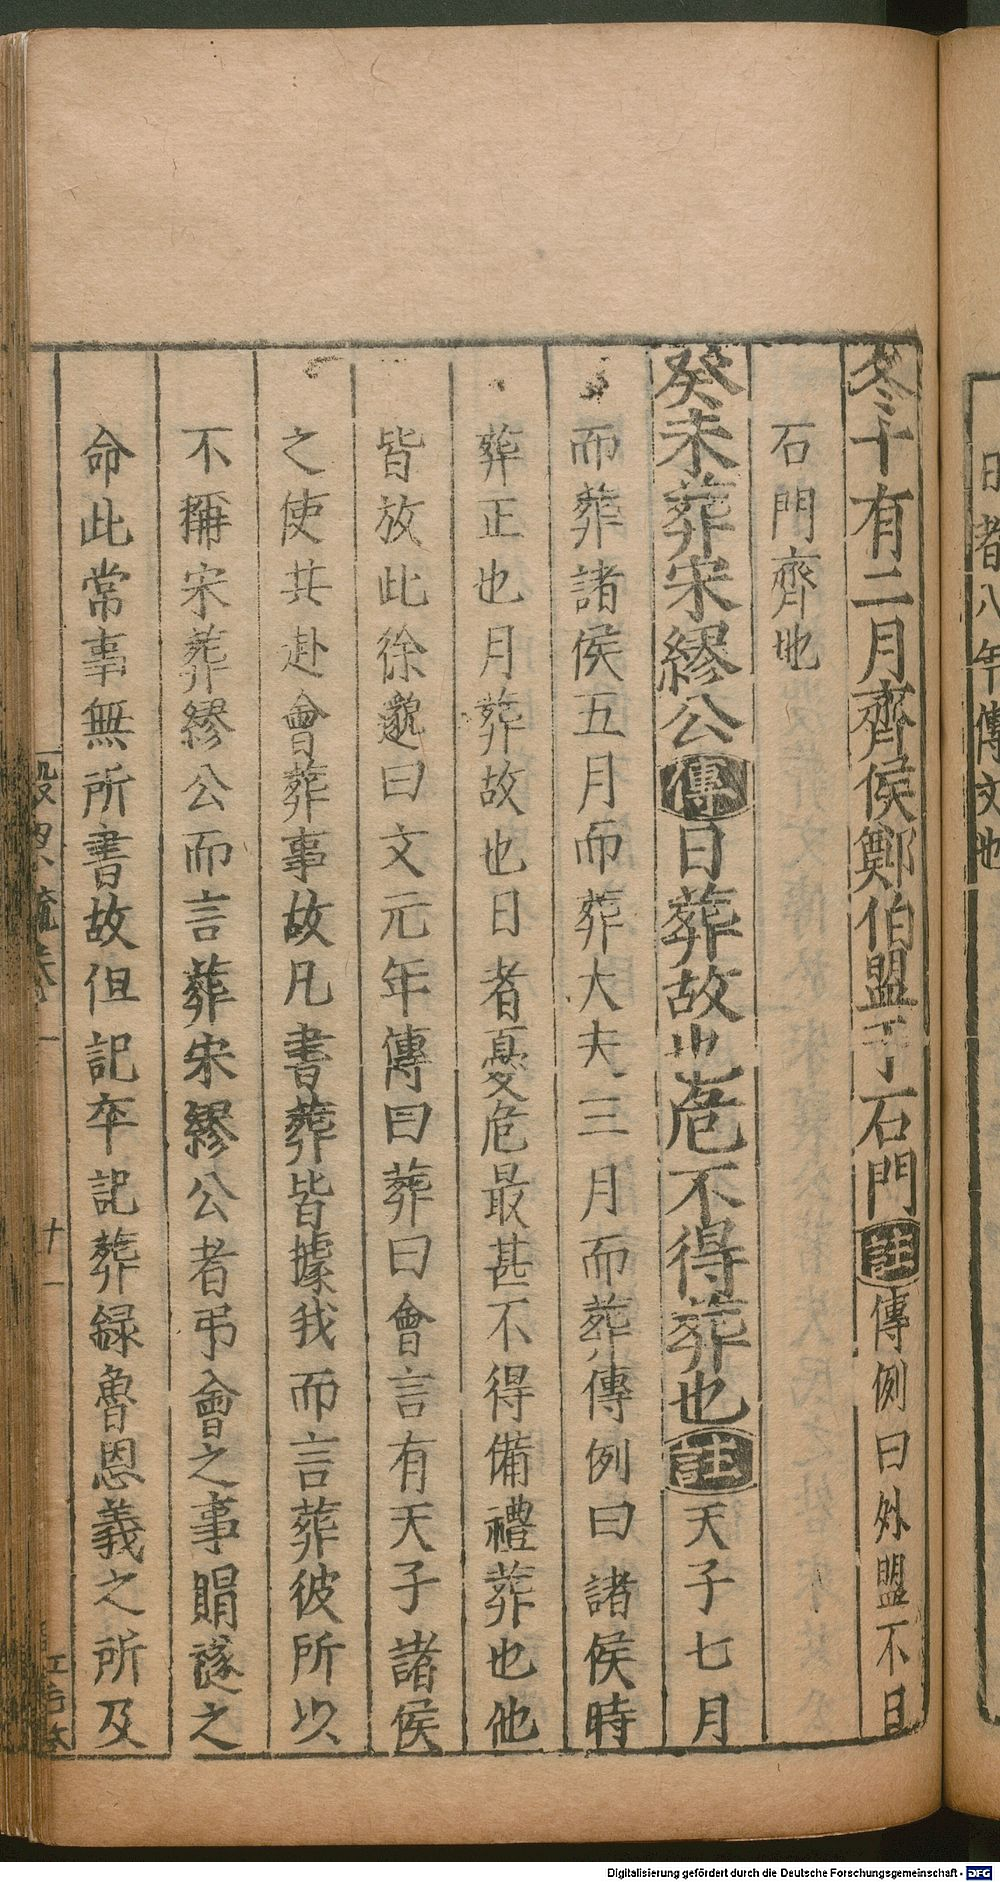 日者八年傳文也
冬十有二月齊侯鄭伯盟于石門註傳例曰外盟不日
石門齊地
癸未葬宋繆公傳日葬故也危不得葬也註天子七月
而葬諸侯五月而葬大夫三月而葬傳例曰諸侯時
葬正也月葬故也日者憂危最甚不得備禮葬也他
皆放此徐邈曰文元年傳曰葬曰會言有天子諸侯
之使共赴會葬事故凡書葬皆據我而言葬彼所以
不稱宋葬繆公而言葬宋繆公者弔會之事賵襚之
命此常事無所書故但記卒記葬録魯恩義之所及
十一
Digitalisierung gefördert durch die Deutsche Forschungsgemeinschaft - DFG